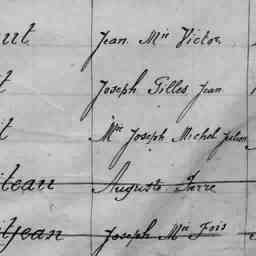 ut Jean Mie Victor
t Joseph Gilles Jean
t Mie Joseph Michel Julien
iteau Auguste Pierre
itjean Joseph Mie Fois